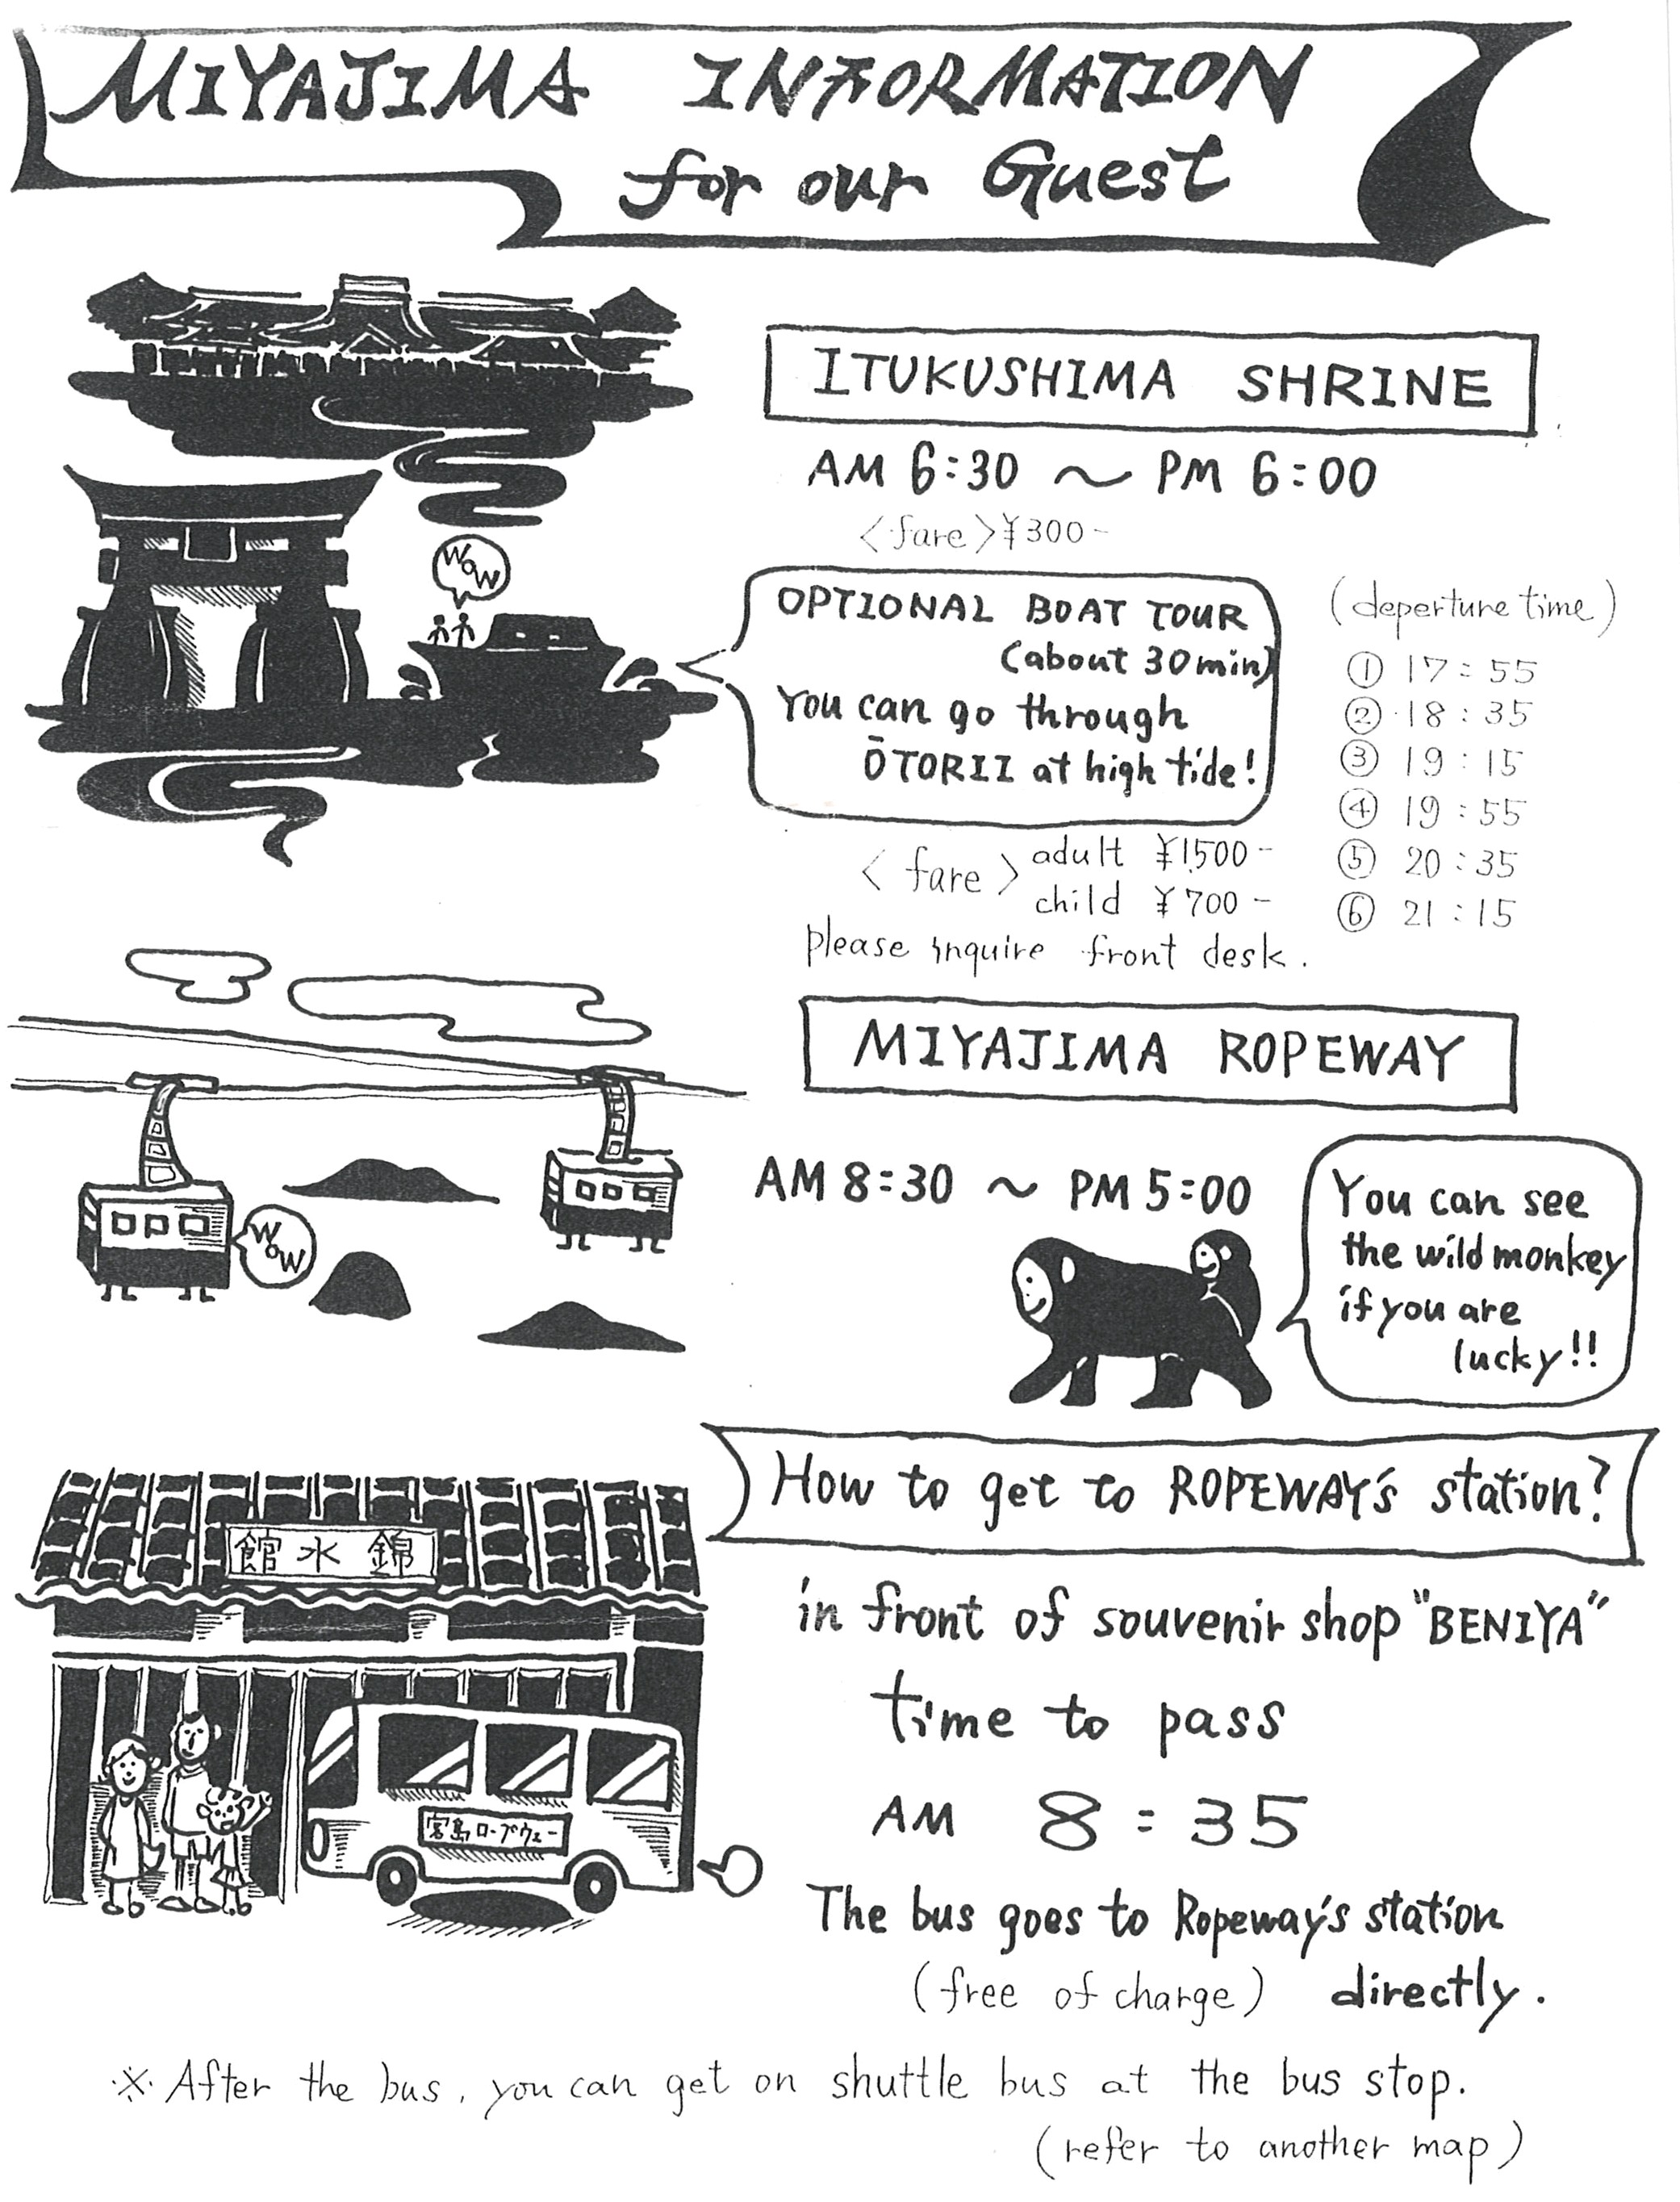 MIYAJIMA INFORMATION
for our Guest
ITUKUSHIMA SHRINE
AM 6:30 ～ PM 6:00
<fare>¥300-
WOW
OPTIONAL BOAT TOUR
(about 30min)
You can go through
ŌTORII at high tide!
(deperture time)
① 17:55
② 18:35
③ 19:15
④ 19:55
⑤ 20:35
⑥ 21:15
<fare> adult ¥1,500-
child ¥700-
please inquire front desk.
MIYAJIMA ROPEWAY
AM 8:30 ～ PM 5:00
WOW
You can see
the wild monkey
if you are
lucky!!
How to get to ROPEWAY's station?
館水錦
in front of souvenir shop "BENIYA"
time to pass
AM 8:35
宮島ロープウェー
The bus goes to Ropeway's station
(free of charge) directly.
※ After the bus, you can get on shuttle bus at the bus stop.
(refer to another map)